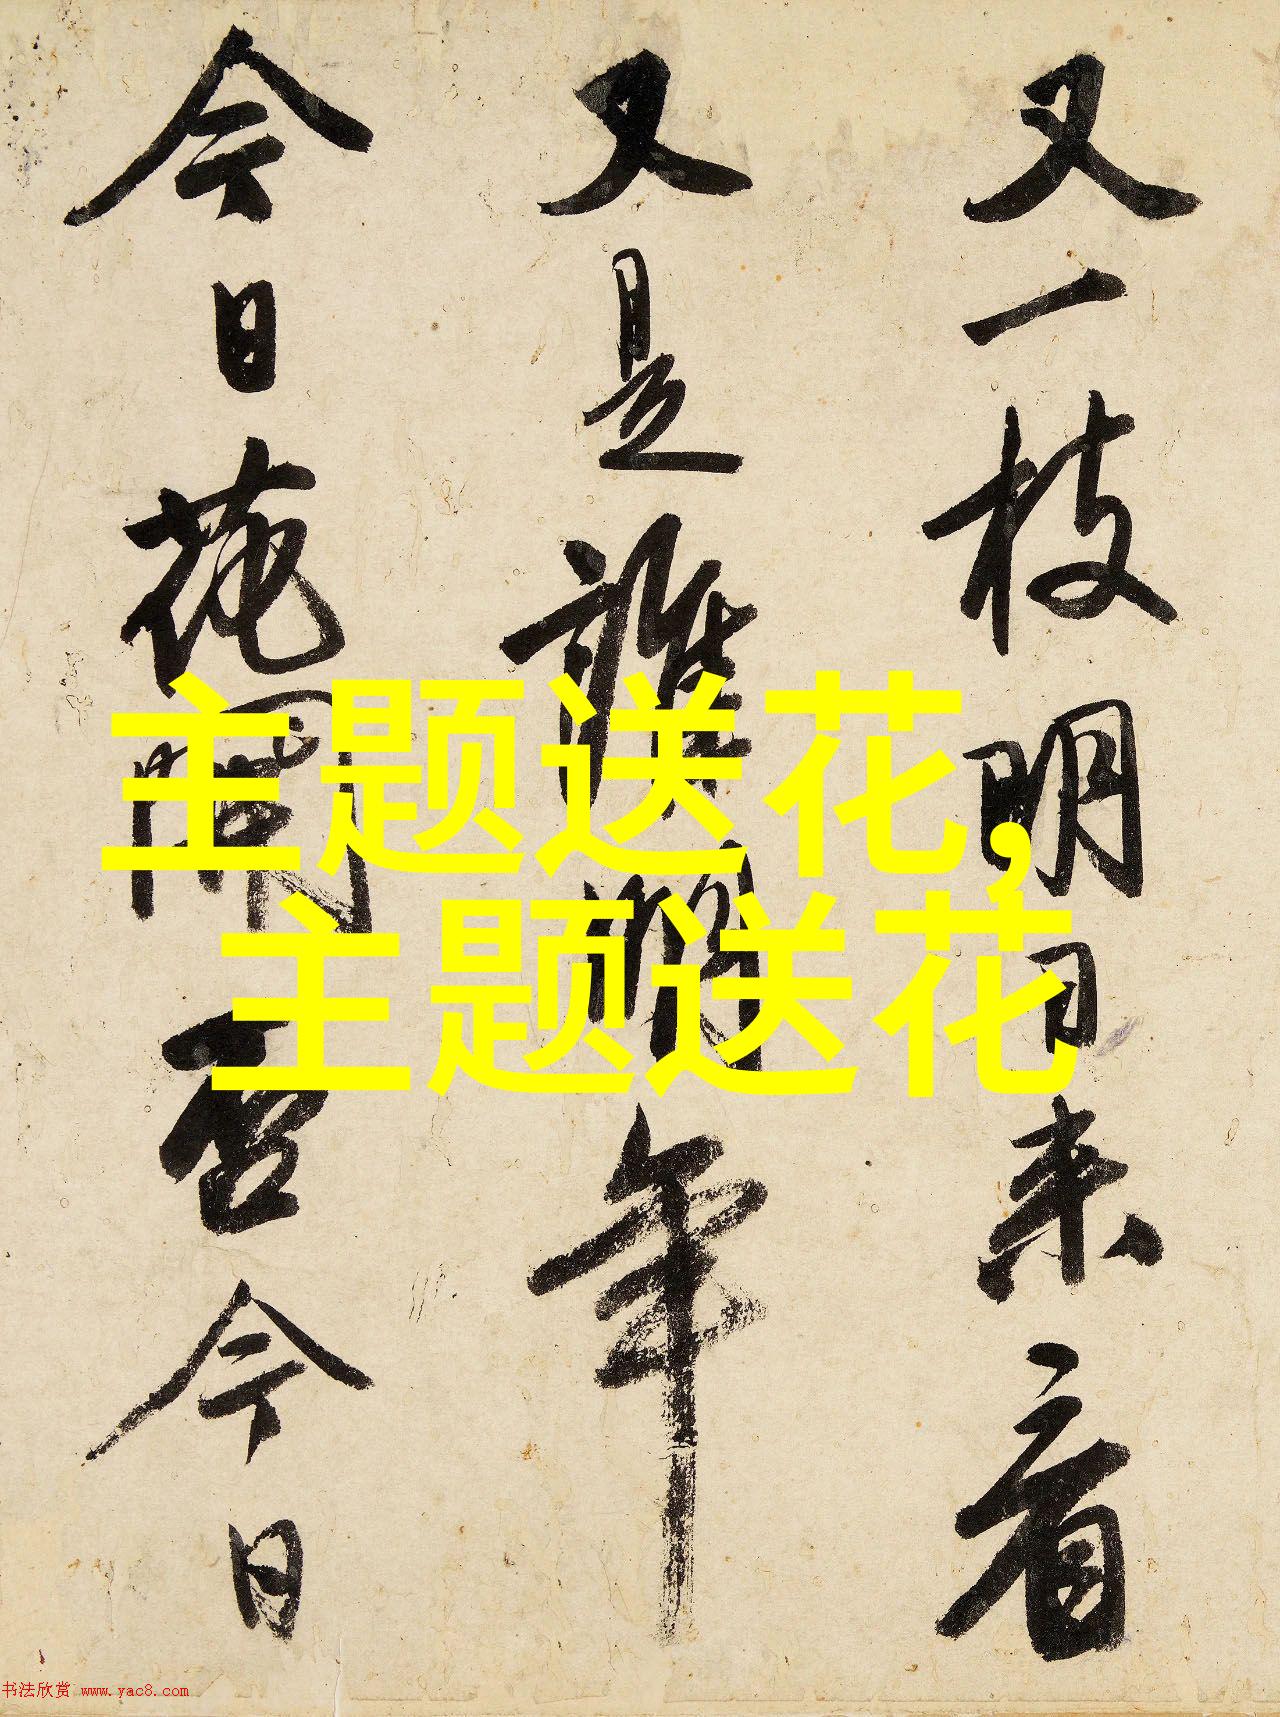 又一枝明日来看
又是誰明年
今日花開否今日
主题送花，
主题送花
书法欣赏 www.yac8.com